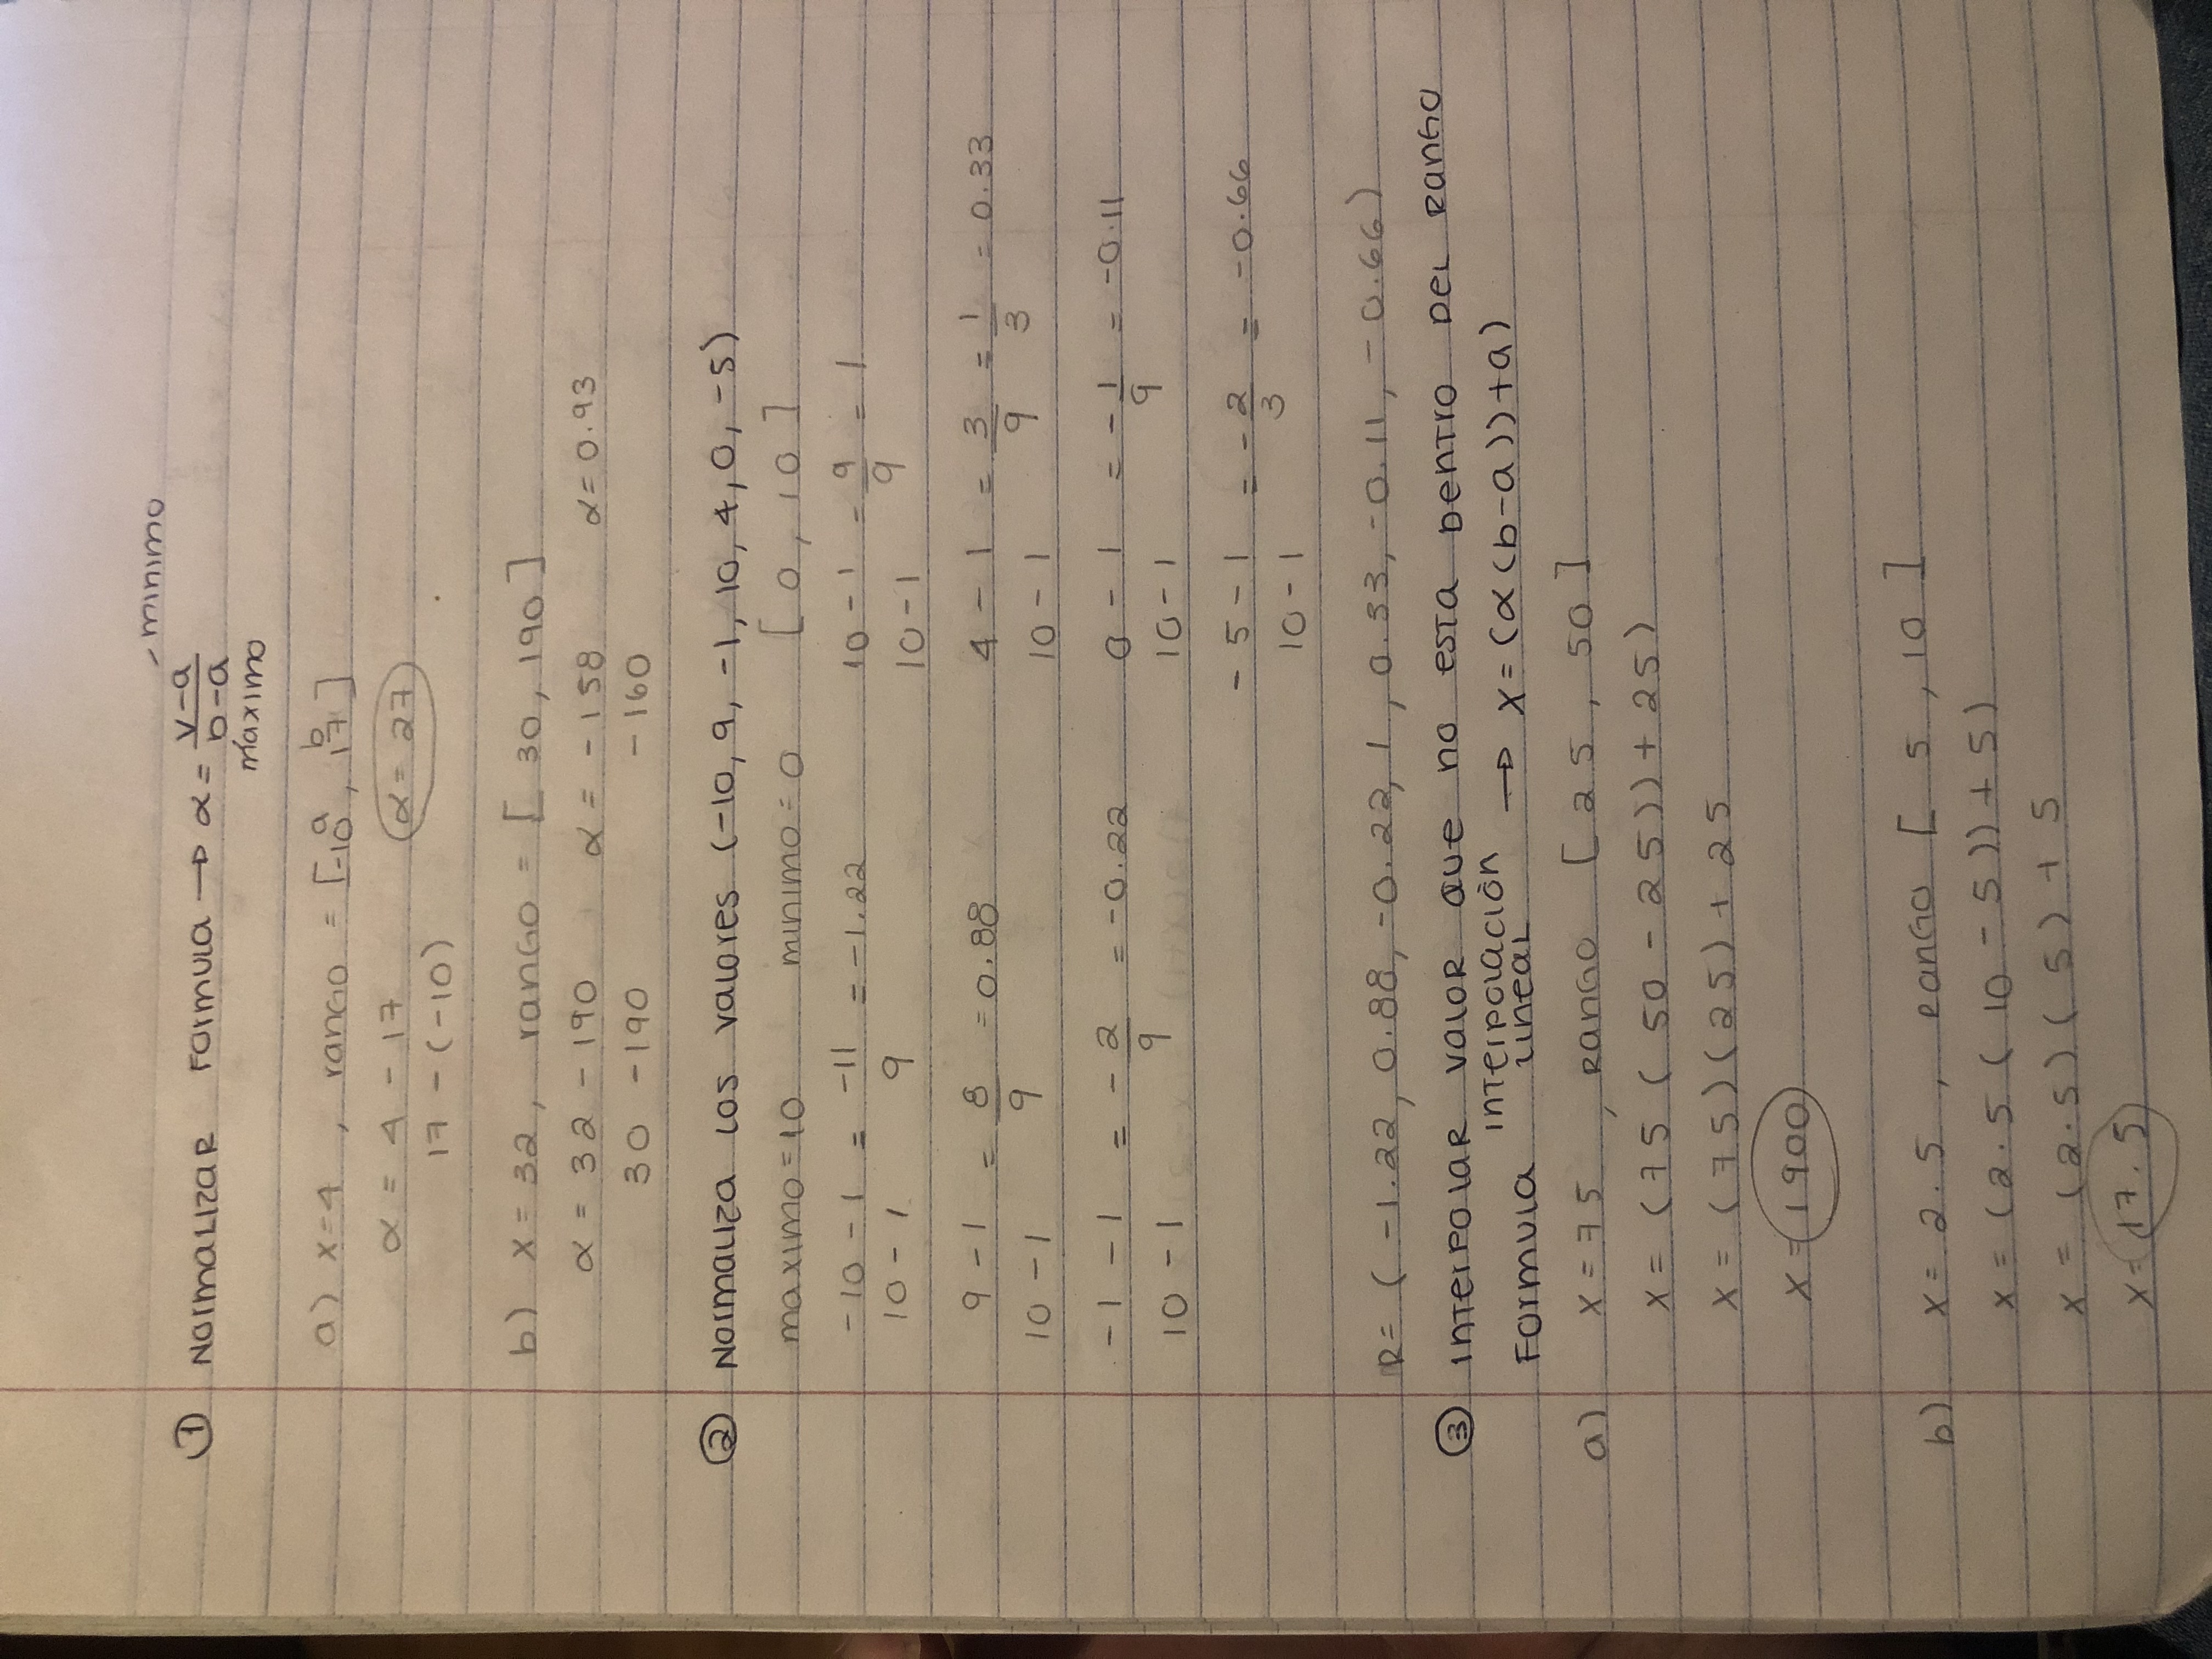 minimo
① NORMALIZAR FORMULA → α = v-a / b-a
máximo
a b
a) x=4 , rango = [-10 , 17 ]
α = 4 - 17 α = 27
17 - (-10)
b) x = 32, rango = [ 30, 190 ]
α = 32 - 190 α = -158 α = 0.93
30 - 190 -160
② Normaliza los valores (-10, 9, -1, 10, 4, 0, -5)
maximo = 10 minimo = 0 [ 0, 10 ]
-10 - 1 = -11 = -1.22 10 - 1 = 9 = 1
10 - 1 9 10 - 1 9
9 - 1 = 8 = 0.88 4 - 1 = 3 = 1 = 0.33
10 - 1 9 10 - 1 9 3
-1 - 1 = - 2 = -0.22 0 - 1 = - 1 = -0.11
10 - 1 9 10 - 1 9
- 5 - 1 = - 2 = -0.66
10 - 1 3
R = ( -1.22, 0.88, -0.22, 1, 0.33, -0.11, -0.66)
③ INTERPOLAR VALOR QUE NO ESTA DENTRO DEL RANGO
FORMULA INTERPOLACIÓN LINEAL → x = (α (b-a)) + a)
a) x = 75 , RANGO [ 25 , 50 ]
x = (75 ( 50 - 25)) + 25)
x = (75)(25) + 25
x = 1900
b) x = 2.5 , RANGO [ 5 , 10 ]
x = (2.5 ( 10 - 5)) + 5)
x = (2.5)( 5) + 5
x = 17.5